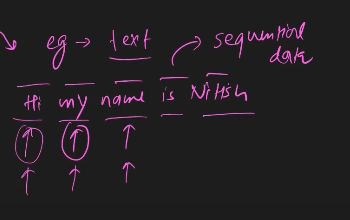 eg → text → sequential data
Hi my name is Nitish